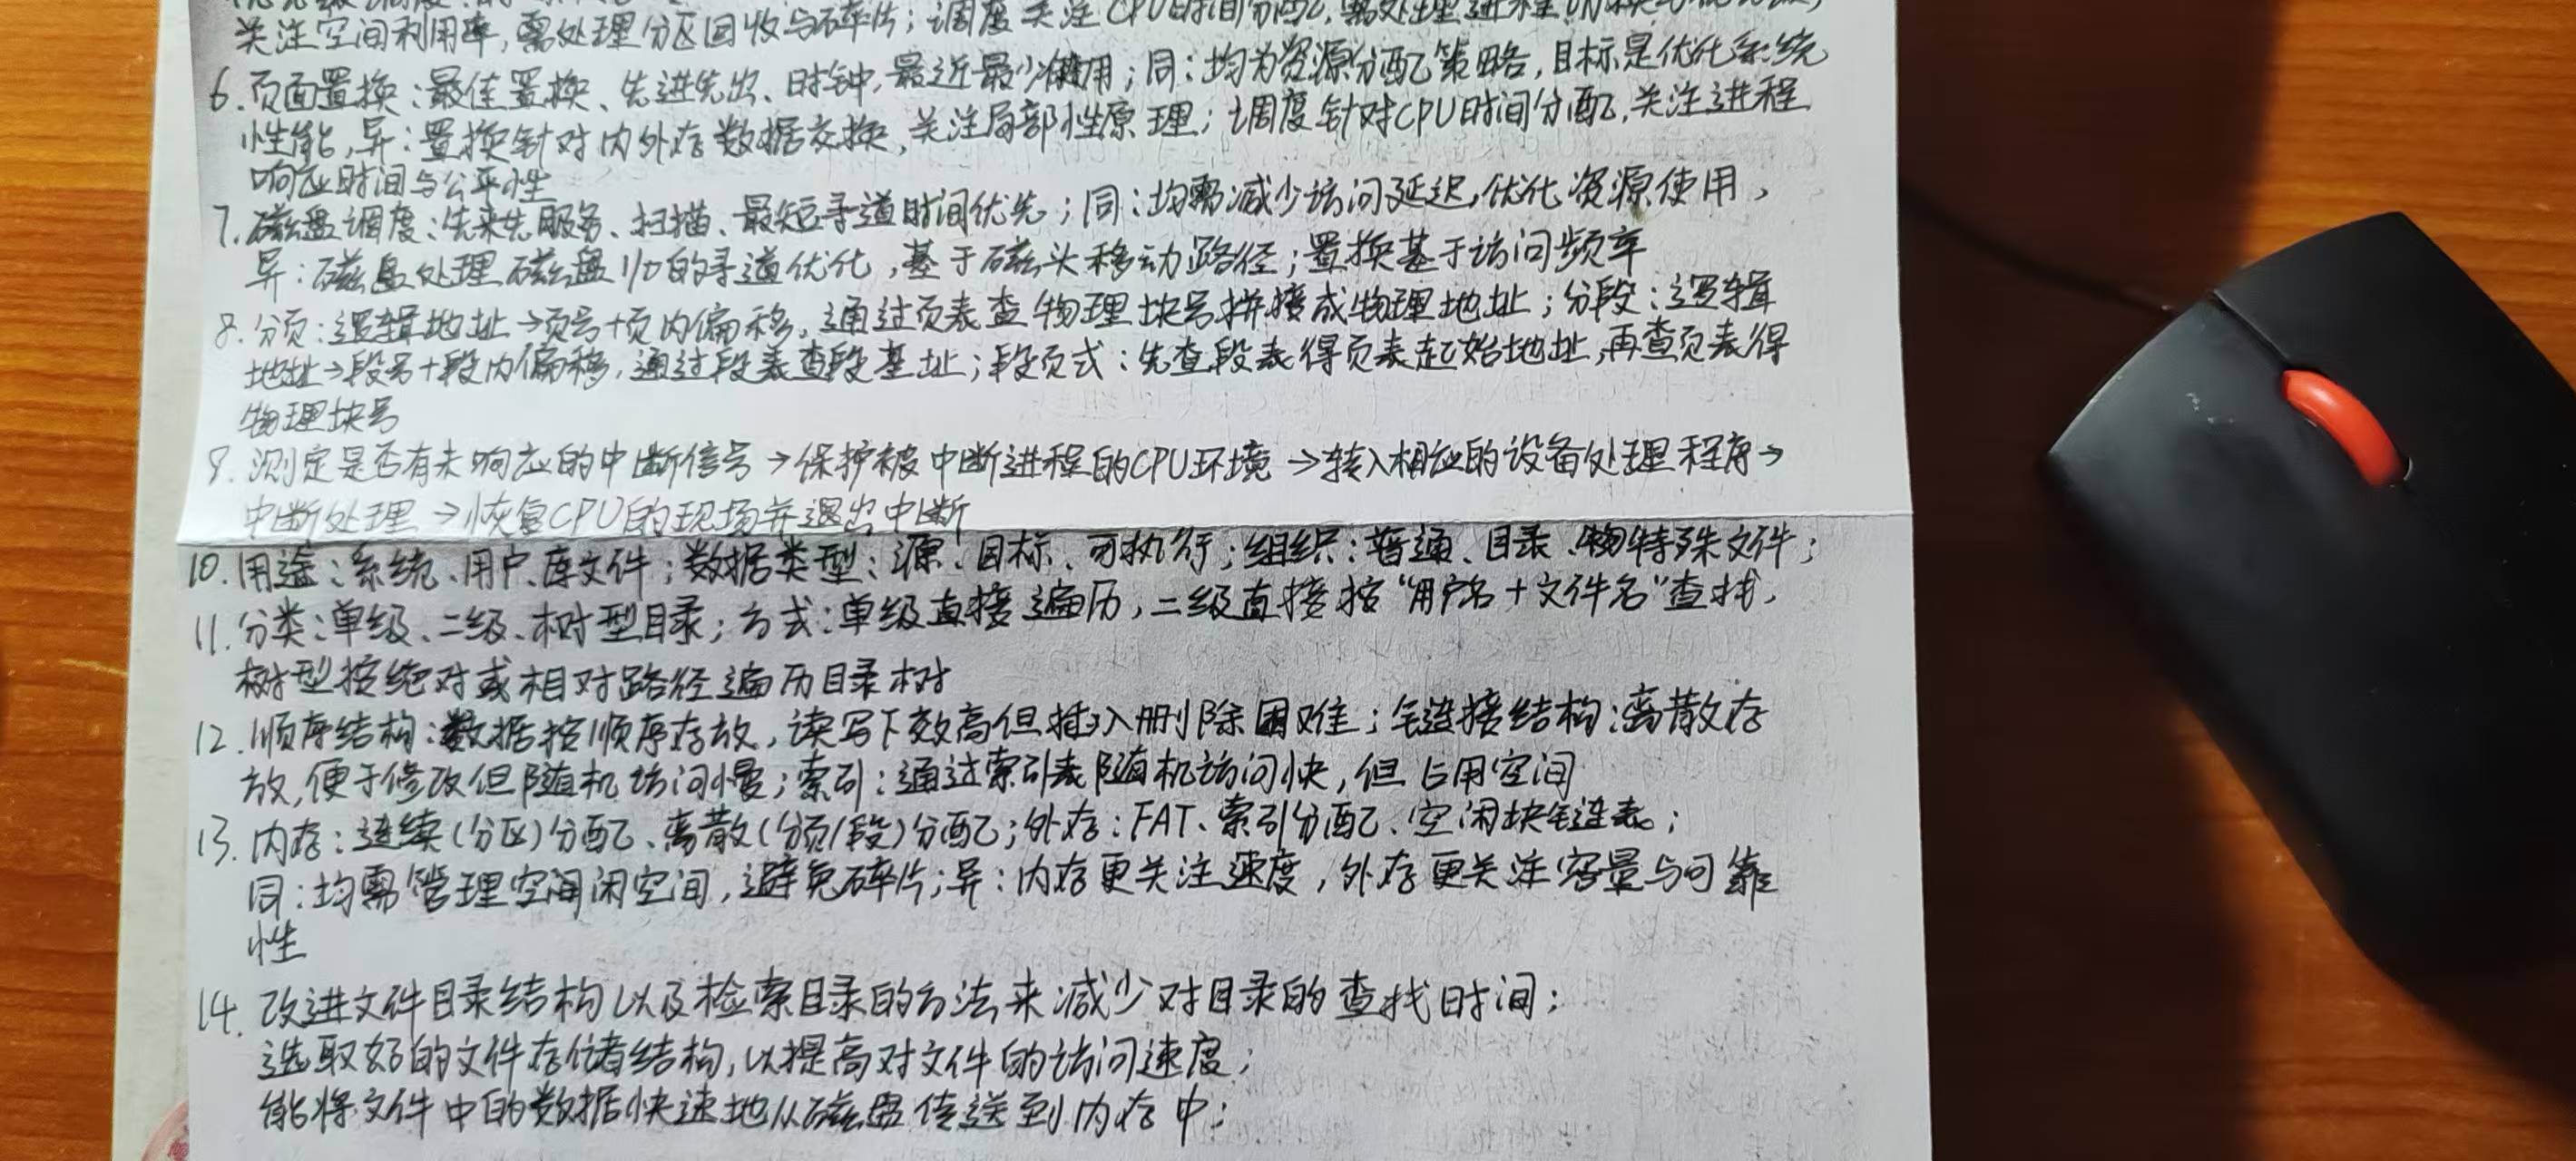 关注空间利用率,需处理分区回收与碎片;调度关注CPU时间分配,需处理进程
6.页面置换:最佳置换、先进先出、时钟,最近最少使用;同:均为资源分配策略,目标是优化系统
性能,异:置换针对内外存数据交换,关注局部性原理;调度针对CPU时间分配,关注进程
响应时间与公平性
7.磁盘调度:先来先服务、扫描、最短寻道时间优先;同:均需减少访问延迟,优化资源使用,
异:磁盘处理磁盘I/O的寻道优化,基于磁头移动路径;置换基于访问频率
8.分页:逻辑地址→页号+页内偏移,通过页表查物理块号拼接成物理地址;分段:逻辑
地址→段号+段内偏移,通过段表查段基址;段页式:先查段表得页表起始地址,再查页表得
物理块号
9.测定是否有未响应的中断信号→保护被中断进程的CPU环境→转入相应的设备处理程序→
中断处理→恢复CPU的现场并退出中断
10.用途:系统、用户、库文件;数据类型:源、目标、可执行;组织:普通、目录、特殊文件;
11.分类:单级、二级、树型目录;方式:单级直接遍历,二级直接按“用户名+文件名”查找,
树型按绝对或相对路径遍历目录树
12.顺序结构:数据按顺序存放,读写下效高但插入删除困难;链接结构:离散存
放,便于修改但随机访问慢;索引:通过索引表随机访问快,但占用空间
13.内存:连续(分区)分配、离散(分页/段)分配;外存:FAT、索引分配、空闲块链表;
同:均需管理空间闲空间,避免碎片;异:内存更关注速度,外存更关注容量与可靠
性
14.改进文件目录结构以及检索目录的方法来减少对目录的查找时间;
选取好的文件存储结构,以提高对文件的访问速度;
能将文件中的数据快速地从磁盘传送到内存中;